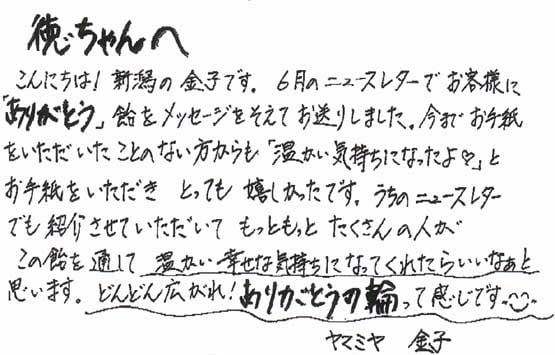 徳ちゃんへ
こんにちは!新潟の金子です。6月のニュースレターでお客様に
「ありがとう」飴をメッセージをそえてお送りしました。今までお手紙
をいただいたことのない方からも「温かい気持ちになったよ♡」と
お手紙をいただき とっても嬉しかったです。うちのニュースレター
でも紹介させていただいて もっともっと たくさんの人が
この飴を通して 温かい幸せな気持ちになってくれたらいいなぁと
思います。どんどん広がれ!ありがとうの輪って感じです。
ヤマミヤ 金子